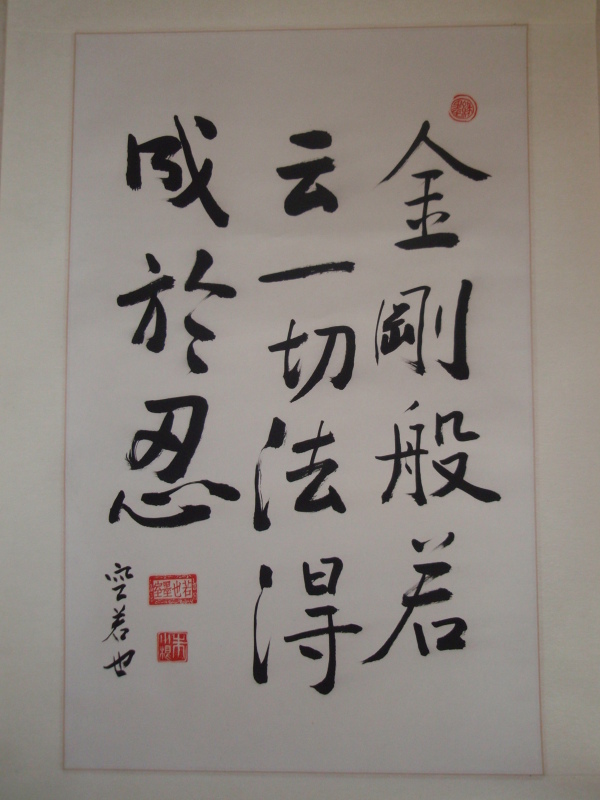 金剛般若
云一切法得
成於忍
空若也